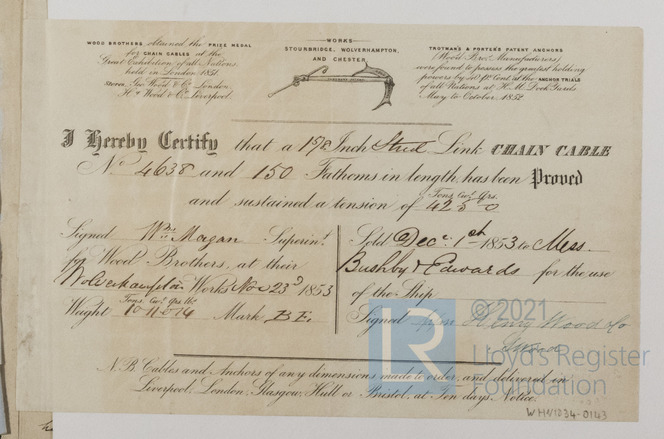 WOOD BROTHERS obtained the PRIZE MEDAL
for CHAIN CABLES at the
Great Exhibition of all Nations
held in London 1851.
Stores, Geo. Wood & Co. London.
H. Wood & Co. Liverpool.
WORKS
STOURBRIDGE, WOLVERHAMPTON,
AND CHESTER.
TROTMANS & PORTER'S PATENT ANCHORS
(Wood Bros. Manufacturers)
were found to possess the greatest holding
powers by 20 Pr. Cent. at the ANCHOR TRIALS
of all Nations at H.M. Dock Yards
May to October, 1852
I Hereby Certify that a 1 7/8 Inch Stud Link CHAIN CABLE
No. 4638 and 150 Fathoms in length has been Proved
Tons Cwt. Qrs.
and sustained a tension of 42 5 0
Signed Wm. Magan Superint.
for Wood Brothers, at their
Wolverhampton Works Nov 23d 1853
Tons Cwt. Qrs. lb.
Weight Mark BE.
Sold Decr. 1st 1853 to Mess.
Bushby & Edwards for the use
of the Ship
Signed Henry Wood & Co
N.B. Cables and Anchors of any dimensions made to order, and delivered in
Liverpool, London, Glasgow, Hull or Bristol, at Ten days Notice.
© 2021
LR
Lloyd's Register
Foundation